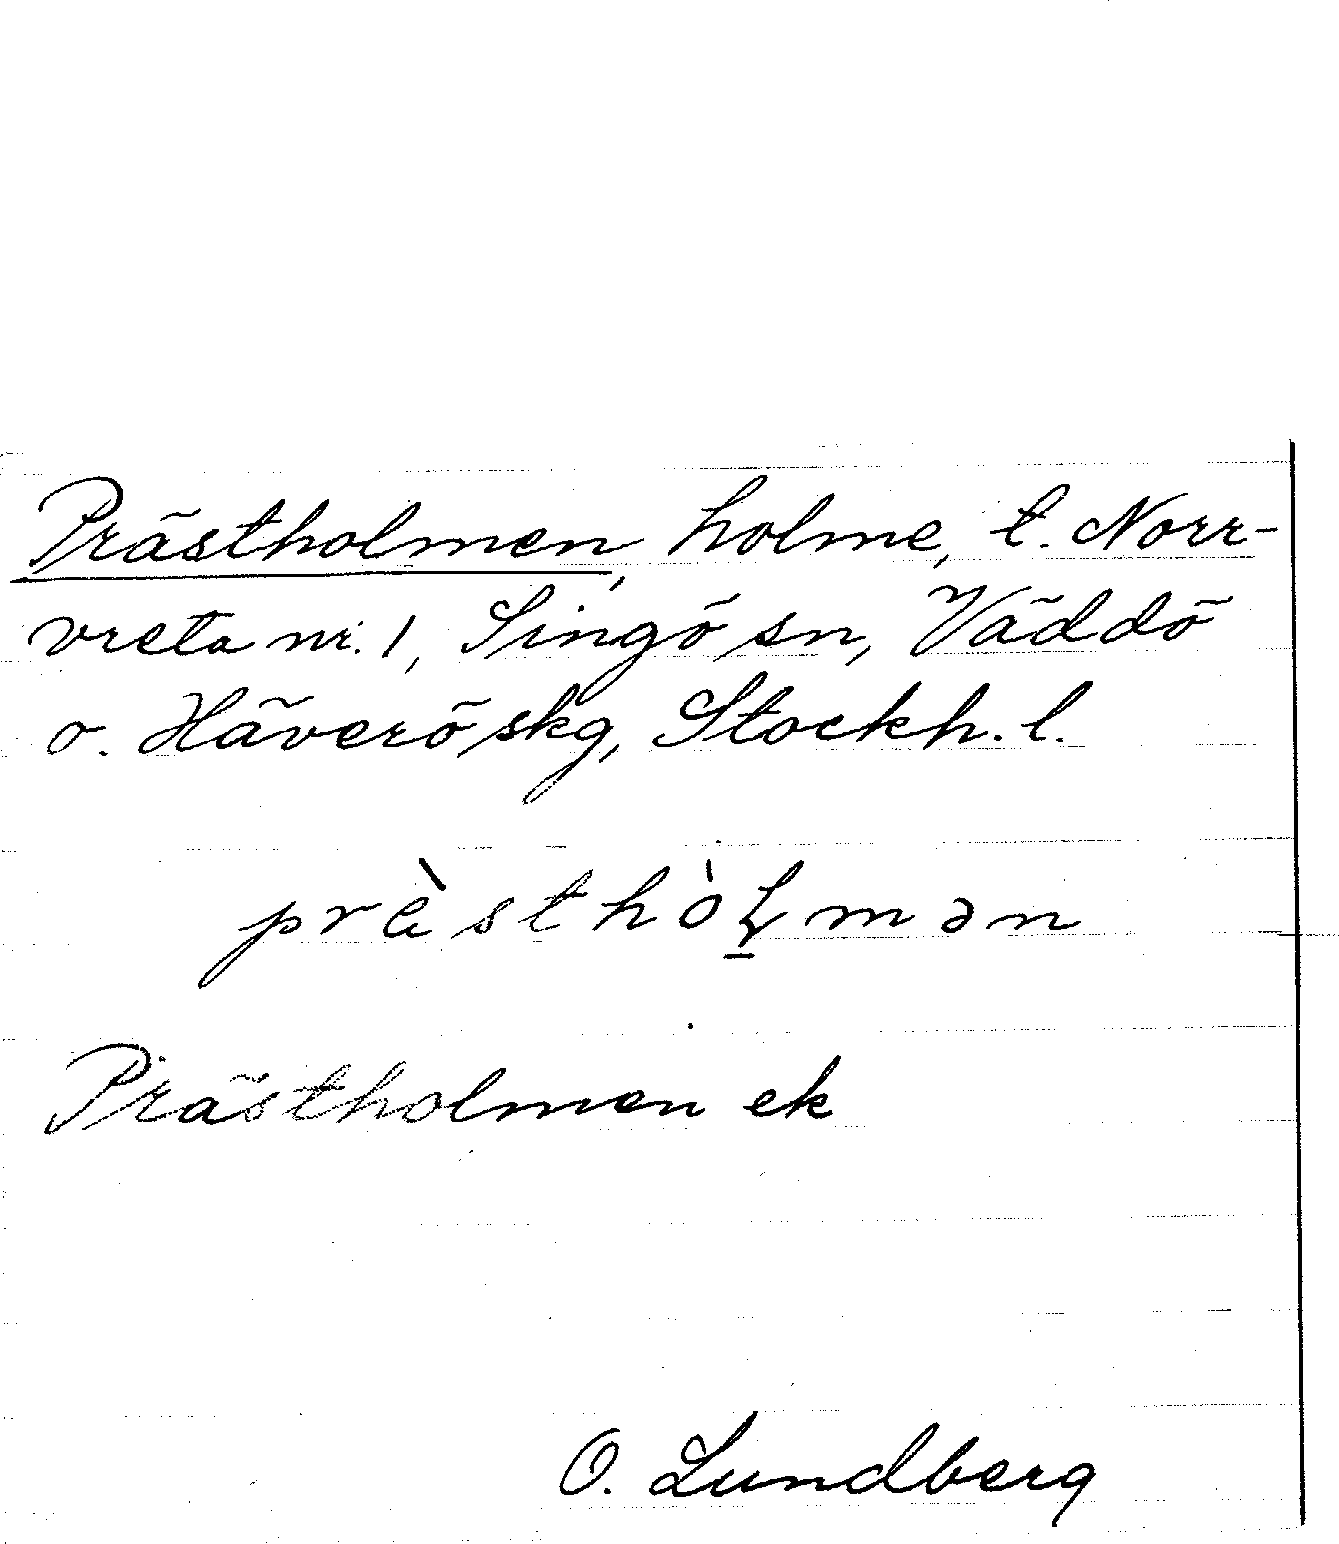 Prästholmen, holme, t. Norr-
vreta nr. 1, Singö sn, Väddö
o. Häverö skg, Stockh. l.
præ̀sthòɭmən
Prästholmen ek
O. Lundberg